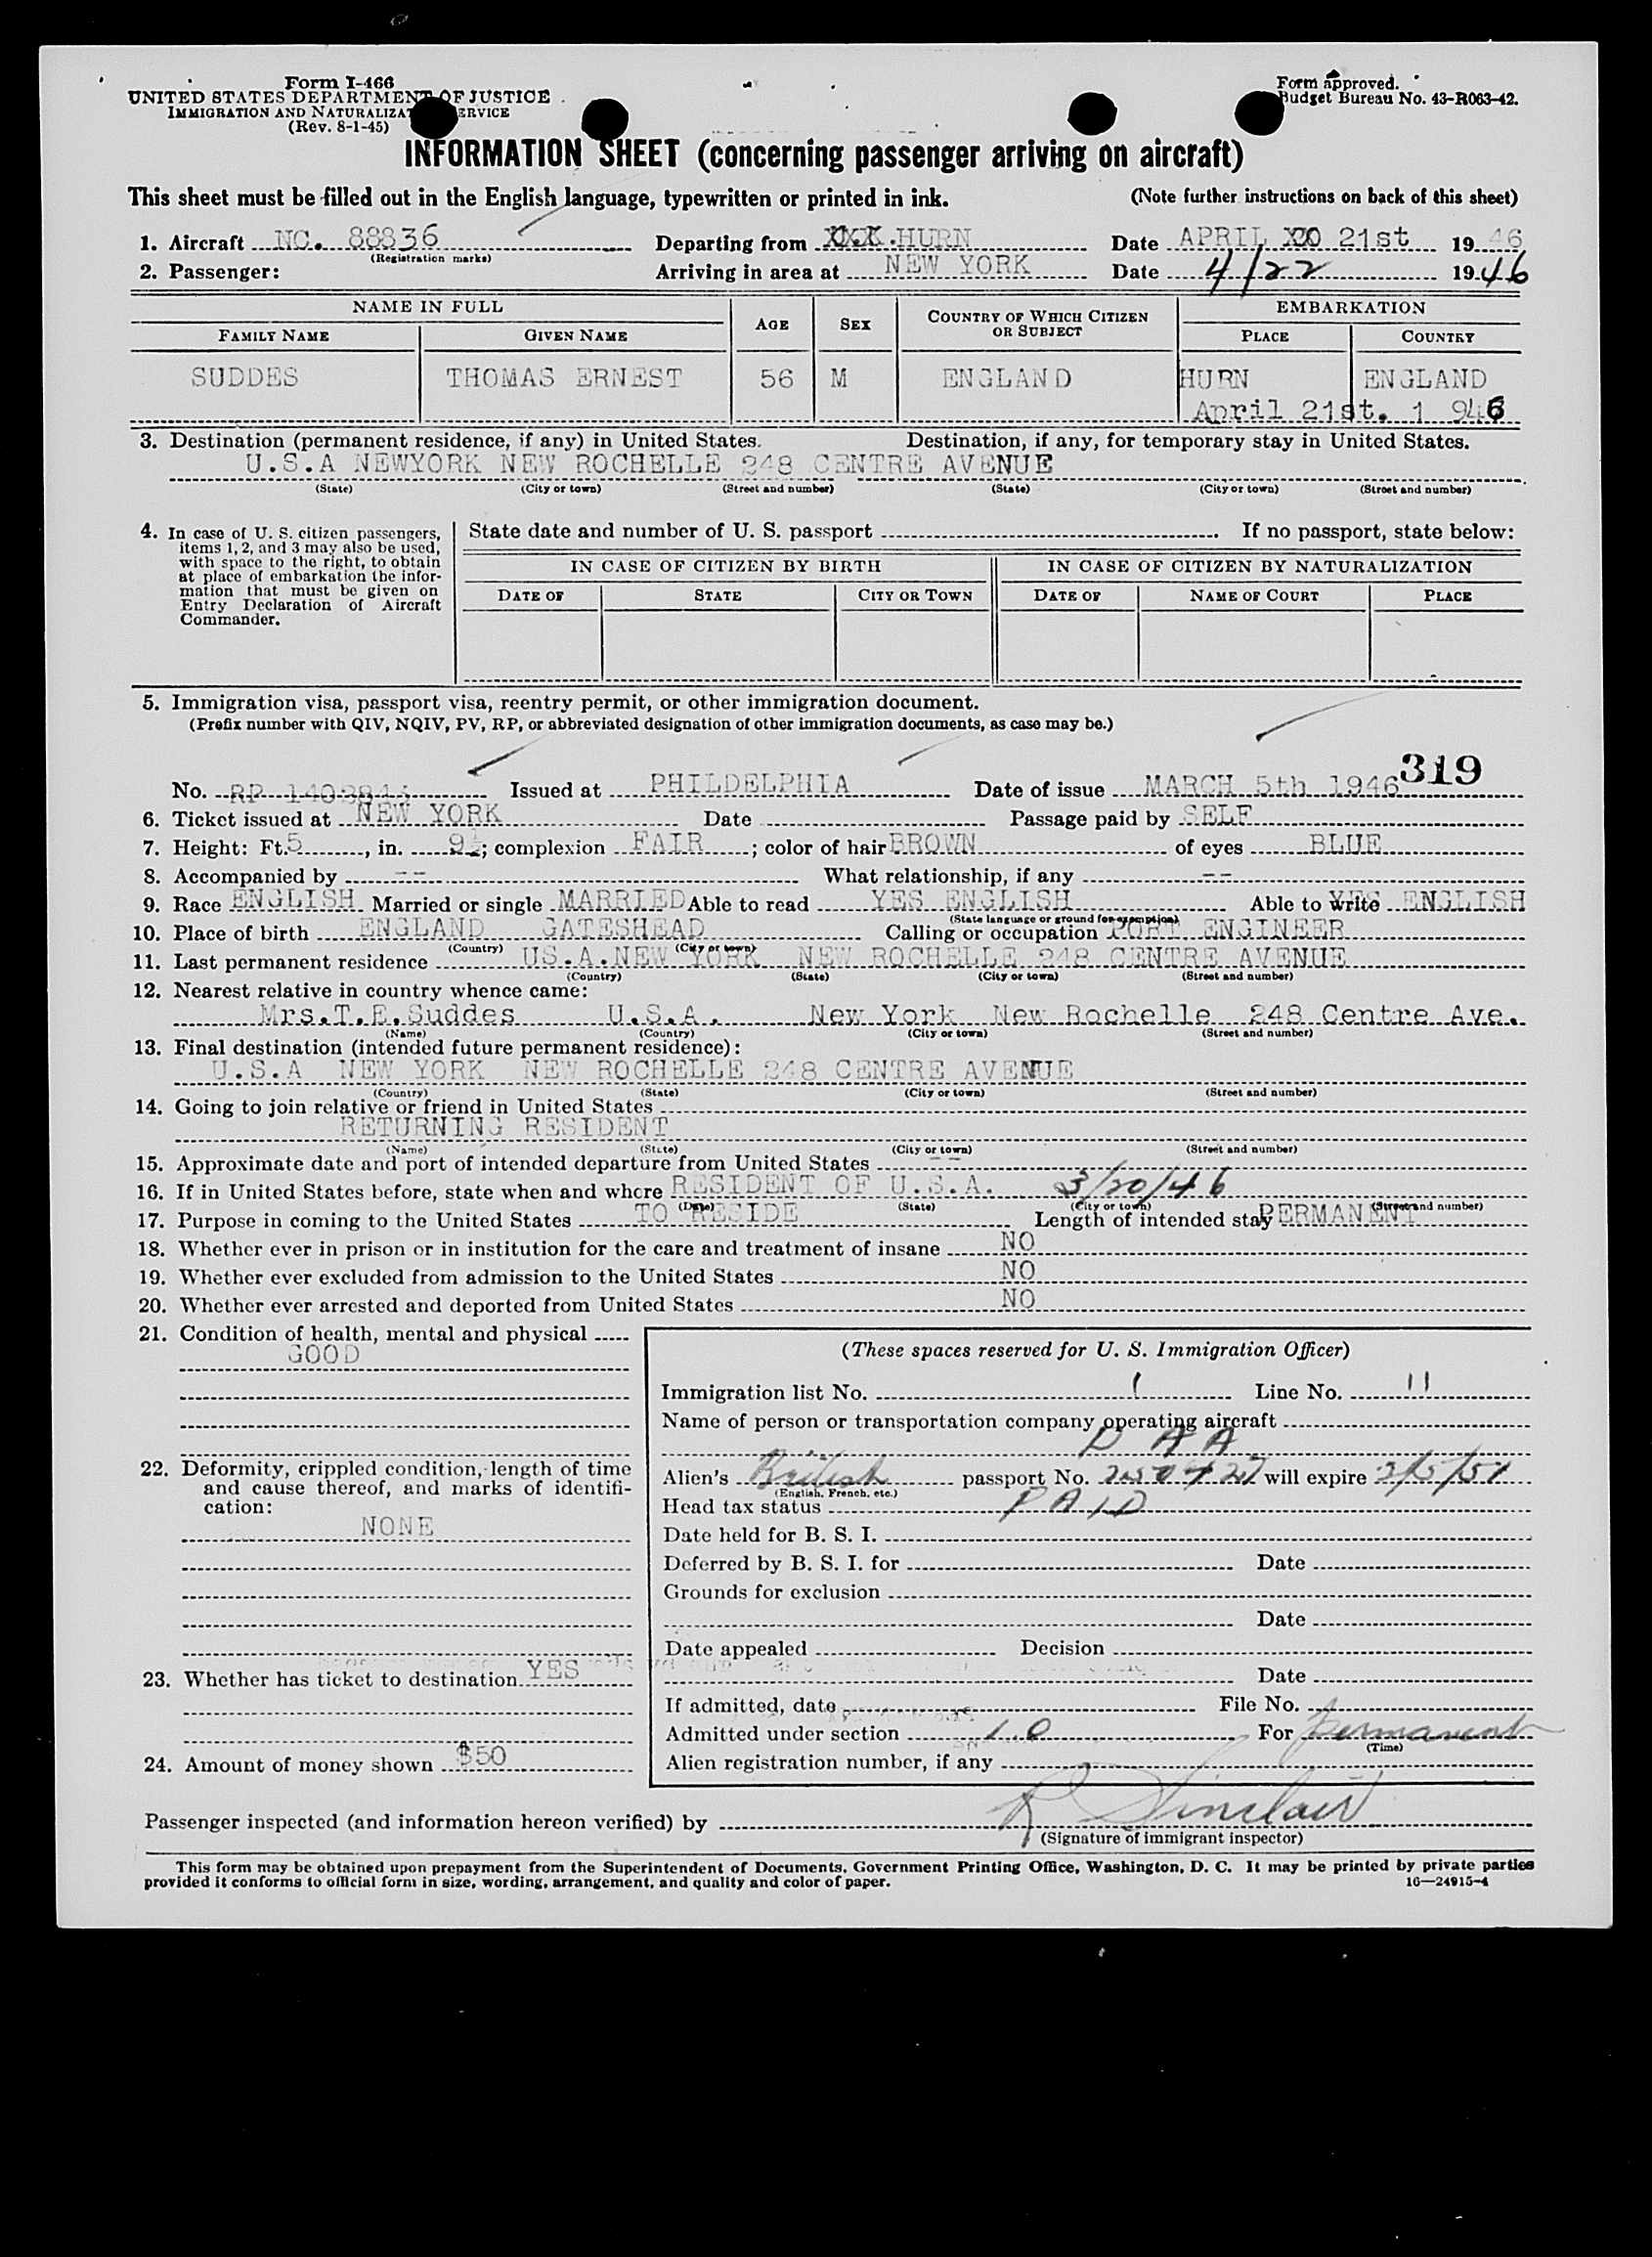 Form I-466
UNITED STATES DEPARTMENT OF JUSTICE
IMMIGRATION AND NATURALIZAT ERVICE
(Rev. 8-1-45)
Form approved.
Budget Bureau No. 43-R063-42.
INFORMATION SHEET (concerning passenger arriving on aircraft)
This sheet must be filled out in the English language, typewritten or printed in ink. (Note further instructions on back of this sheet)
1. Aircraft NC. 88836 Departing from XXX.HURN Date APRIL XX 21st 19 46
(Registration marks)
2. Passenger: Arriving in area at NEW YORK Date 4/22 19 46
NAME IN FULL AGE SEX COUNTRY OF WHICH CITIZEN OR SUBJECT EMBARKATION
FAMILY NAME GIVEN NAME PLACE COUNTRY
SUDDES THOMAS ERNEST 56 M ENGLAND HURN ENGLAND
April 21st. 1 946
3. Destination (permanent residence, if any) in United States. Destination, if any, for temporary stay in United States.
U.S.A NEWYORK NEW ROCHELLE 248 CENTRE AVENUE
(State) (City or town) (Street and number) (State) (City or town) (Street and number)
4. In case of U. S. citizen passengers, items 1, 2, and 3 may also be used, with space to the right, to obtain at place of embarkation the infor-
mation that must be given on Entry Declaration of Aircraft Commander.
State date and number of U. S. passport If no passport, state below:
IN CASE OF CITIZEN BY BIRTH IN CASE OF CITIZEN BY NATURALIZATION
DATE OF STATE CITY OR TOWN DATE OF NAME OF COURT PLACE
5. Immigration visa, passport visa, reentry permit, or other immigration document.
(Prefix number with QIV, NQIV, PV, RP, or abbreviated designation of other immigration documents, as case may be.)
319
No. RP Issued at PHILDELPHIA Date of issue MARCH 5th 1946
6. Ticket issued at NEW YORK Date Passage paid by SELF
7. Height: Ft. 5, in. 9½; complexion FAIR; color of hair BROWN of eyes BLUE
8. Accompanied by -- What relationship, if any --
9. Race ENGLISH Married or single MARRIED Able to read YES ENGLISH Able to write YES ENGLISH
(State language or ground for exemption)
10. Place of birth ENGLAND GATESHEAD Calling or occupation PORT ENGINEER
(Country) (City or town)
11. Last permanent residence US.A.NEW YORK NEW ROCHELLE 248 CENTRE AVENUE
(Country) (State) (City or town) (Street and number)
12. Nearest relative in country whence came:
Mrs.T.E.Suddes U.S.A. New York New Rochelle 248 Centre Ave.
(Name) (Country) (City or town) (Street and number)
13. Final destination (intended future permanent residence):
U.S.A NEW YORK NEW ROCHELLE 248 CENTRE AVENUE
(Country) (State) (City or town) (Street and number)
14. Going to join relative or friend in United States
RETURNING RESIDENT
(Name) (State) (City or town) (Street and number)
15. Approximate date and port of intended departure from United States --
16. If in United States before, state when and where RESIDENT OF U.S.A. 3/20/46
(Date) (State) (City or town) (Street and number)
17. Purpose in coming to the United States TO RESIDE Length of intended stay PERMANENT
18. Whether ever in prison or in institution for the care and treatment of insane NO
19. Whether ever excluded from admission to the United States NO
20. Whether ever arrested and deported from United States NO
21. Condition of health, mental and physical
GOOD
22. Deformity, crippled condition, length of time
and cause thereof, and marks of identifi-
cation:
NONE
23. Whether has ticket to destination YES
24. Amount of money shown $50
(These spaces reserved for U. S. Immigration Officer)
Immigration list No. 1 Line No. 11
Name of person or transportation company operating aircraft
P A A
Alien's British passport No. will expire 3/5/51
(English, French, etc.)
Head tax status PAID
Date held for B. S. I.
Deferred by B. S. I. for Date
Grounds for exclusion
Date
Date appealed Decision
Date
If admitted, date File No.
Admitted under section For permanent
(Time)
Alien registration number, if any
Passenger inspected (and information hereon verified) by R Sinclair
(Signature of immigrant inspector)
This form may be obtained upon prepayment from the Superintendent of Documents, Government Printing Office, Washington, D. C. It may be printed by private parties
provided it conforms to official form in size, wording, arrangement, and quality and color of paper. 16—24915-4